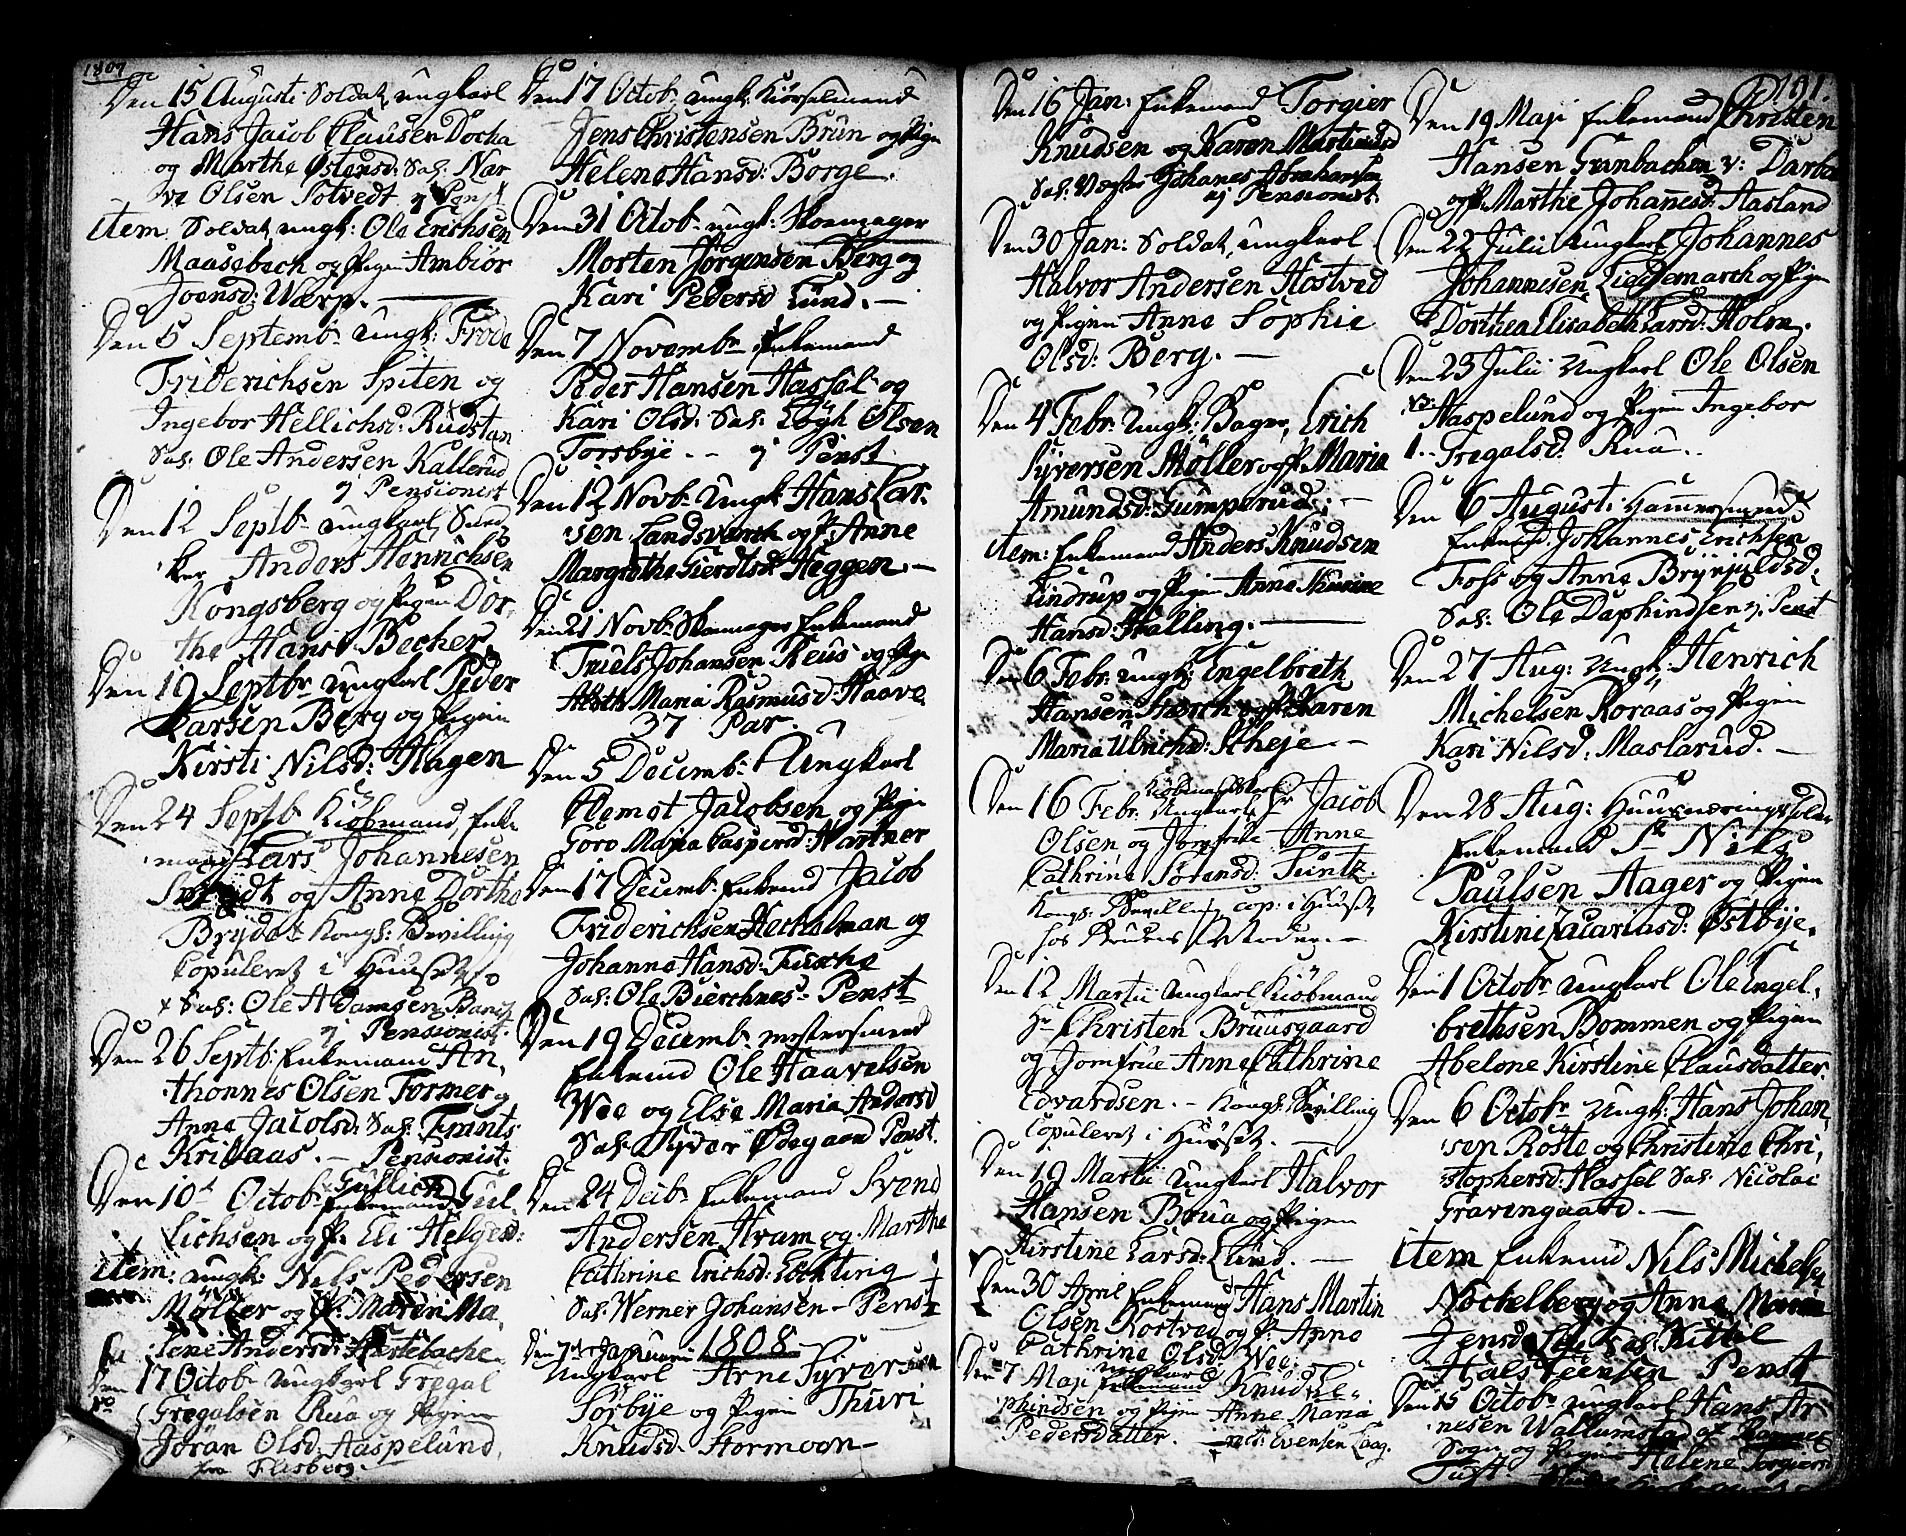 1807
Den 15 Augusti Soldat, ungkarl
Hans Jacob Clausen Docka
og Marthe Østensd: Sal: Nar
ve Olsen Potvedt ej Penst
item Soldat, ungk: Ole Erichsen
Maasebach og Pigen Ambiør
Joensd: Wærp.
Den 5 Septembr Ungk: Frode
Friderichsen Spiten og
Ingebor Hellichsd: Rudstan
Sal: Ole Andersen Kallerud
ej Pensionist
Den 12 Septbr ungkarl, Sned,
ker Anders Henrichsen
Kongsberg og Pigen Dor,
the Hansd Becher,
Den 19 Septbr ungkarl Peder
Larsen Berg og Pigen
Kirsti Nilsd: Hagen
Den 24 Septb Kiøbmand, Enke
mand Lars Johannesen
og Anne Dorthe
Brydet Kongs: Bevilling
Copuleret i Huuset
Sal: Ole Adamsen
ej Pensionist.
Den 26 Septb: Enkemand An,
thonnes Olsen Former og
Anne Jacobsd: Sal:
Krillaas. - Pensionist.
Den 10d Octob Enkemand Gullich Gul,
lichsen og P. Eli Helgesd:
item: ungk: Nils Pedersen
Møller og P: Maren Ma,
lene Andersd: Hestebache
Den 17 Octob ungkarl Gregal
Gregalsen Rua og Pigen
Jøran Olsd: Aaspelund,
fra Flesberg.
Den 17 Octob, ungk: Kiørselmand
Jens Christensen Brun og Pigen
Helene Hansd: Borge.
Den 31 Octob ungk: Skomager
Morten Jørgensen Berg og
Kari Pedersd Lund. -
Den 7 Novembr Enkemand
Peder Hansen Hassel og
Kari Olsd: Sal: Olsen
Torsbye. -- ej Penst
Den 12 Novb ungk: Hans Lar,
sen Landsværck og P: Anne
Margrethe Gierdtsd Heggen. -
Den 21 Novb Skomager Enkemand
Truels Johansen Reus og Pigen
Maria Rasmusd: Haave
37 Par.
Den 5 Decemb Ungkarl
Clemet Jacobsen og Pigen
Goro Maria Caspersd: Hartner
Den 17 Decemb Enkemd Jacob
Friderichsen Heckelman og
Johanna Hansd: Fusche
Sal: Ole Bierchnes Penst
Den 19 Decemb mestersmed
Enkemd Ole Haavelsen
Wee og Else Maria Andersd
Sal: Syver Ødegaard Penst.
Den 24 Decb Enkemand Svend
Andersen Hvam og Marthe
Cathrine Erichsd: Løchting
Sal: Werner Johansen - Penst
Den 7de Januarii 1808
Ungkarl Arne Syversen
Sørbye og Pigen Thuri
Knudsd. Stormoen
191.
Den 16 Jan: Enkemand Torgier
Knudsen og Karen Martinsd
Sal: Vægter Johanes Abrahamsen
ej Pensionist.
Den 30 Jan: Soldat, ungkarl
Halvor Andersen Hostved
og Pigen Anne Sophie
Olsd: Berg. -
Den 4 Febr: Ungk: Bager, Erich
Syversen Møller og P. Maria
Amundsd: Gumperud. -
item: Enkemand Anders Knudsen
Lindrup og Pigen Anne
Hansd: Halling.
Den 6 Febr: ungk: Engelbreth
Hansen og P Karen
Maria Ulrichsd: Scheje. -
Den 16 Febr: Ungkarl, Hr Jacob
Olsen og Jomfrue Anne
Cathrine Sørensd: Funtz.
Kongs: Bevilling cop: i Huuset
hos Brudens Moder. -
Den 12 Martii ungkarl Kiøbmand
Hr Christen Bruusgaard
og Jomfrue Anne Cathrine
Edvardsen. - Kongs: Bevilling
Copuleret i Huuset.
Den 19 Martii ungkarl Halvor
Hansen Brua og Pigen
Kirstine Larsd: Lund. -
Den 30 April Enkemand Hans Martin
Olsen Kortved og P. Anne
Cathrine Olsd: Wee.
Den 7 Maji ungkarl Knud El
phindsen og Pigen Anne Maria
Pedersdatter. Evensen Laag.
Den 19 Maji Enkemand Christen
Hansen Grønbachen v: Darbo
og P: Marthe Johannesd: Aasland
Den 22 Julii ungkarl Johannes
Johannesen Liedemarch og Pigen
Dorthea Elisabeth Larsd: Holm.
Den 23 Julii Ungkarl Ole Olsen
Haspelund og Pigen Ingebor
Gregalsd: Rua..
Den 6 Augusti: Hammersmed
Enkemd Johannes Erichsen
Foss og Anne Brynjuldsd:
Sal: Ole Daphindsen ej Penst
Den 27 Aug: Ungk: Henrich
Michelsen Røraas og Pigen
Kari Nilsd: Maslarud. -
Den 28 Aug:
Enkemand Sr Niels
Paulsen Aager og Pigen
Kirstine Zacariasd: Østbye.
Den 1 Octobr ungkarl Ole Engel,
brethsen Bommen og Pigen
Abelone Kirstine Clausdatter.
Den 6 Octobr Ungk: Hans Johan,
sen Roste og Christine Chri,
stophersd: Hassel Sal: Nicolai
Gravengaard. -
item Enkemd Nils Michelsen
Nockelberg og Anne Maria
Jensd Sal: Kittil
Halsteensen Penst
Den 15 Octobr ungkarl Hans Ar
nesen Wallumstad af
Sogn og Pigen Helene Torgiersd